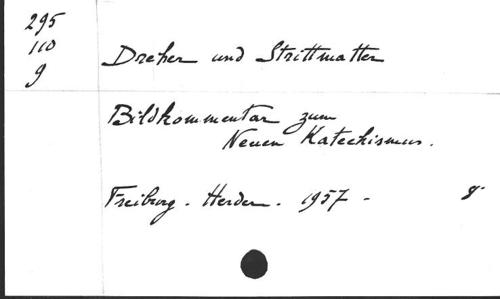 295
110
g
Dreher und Strittmatter
Bildkommentar zum
Neuen Katechismus.
Freiburg - Herder - 1957 - 8°